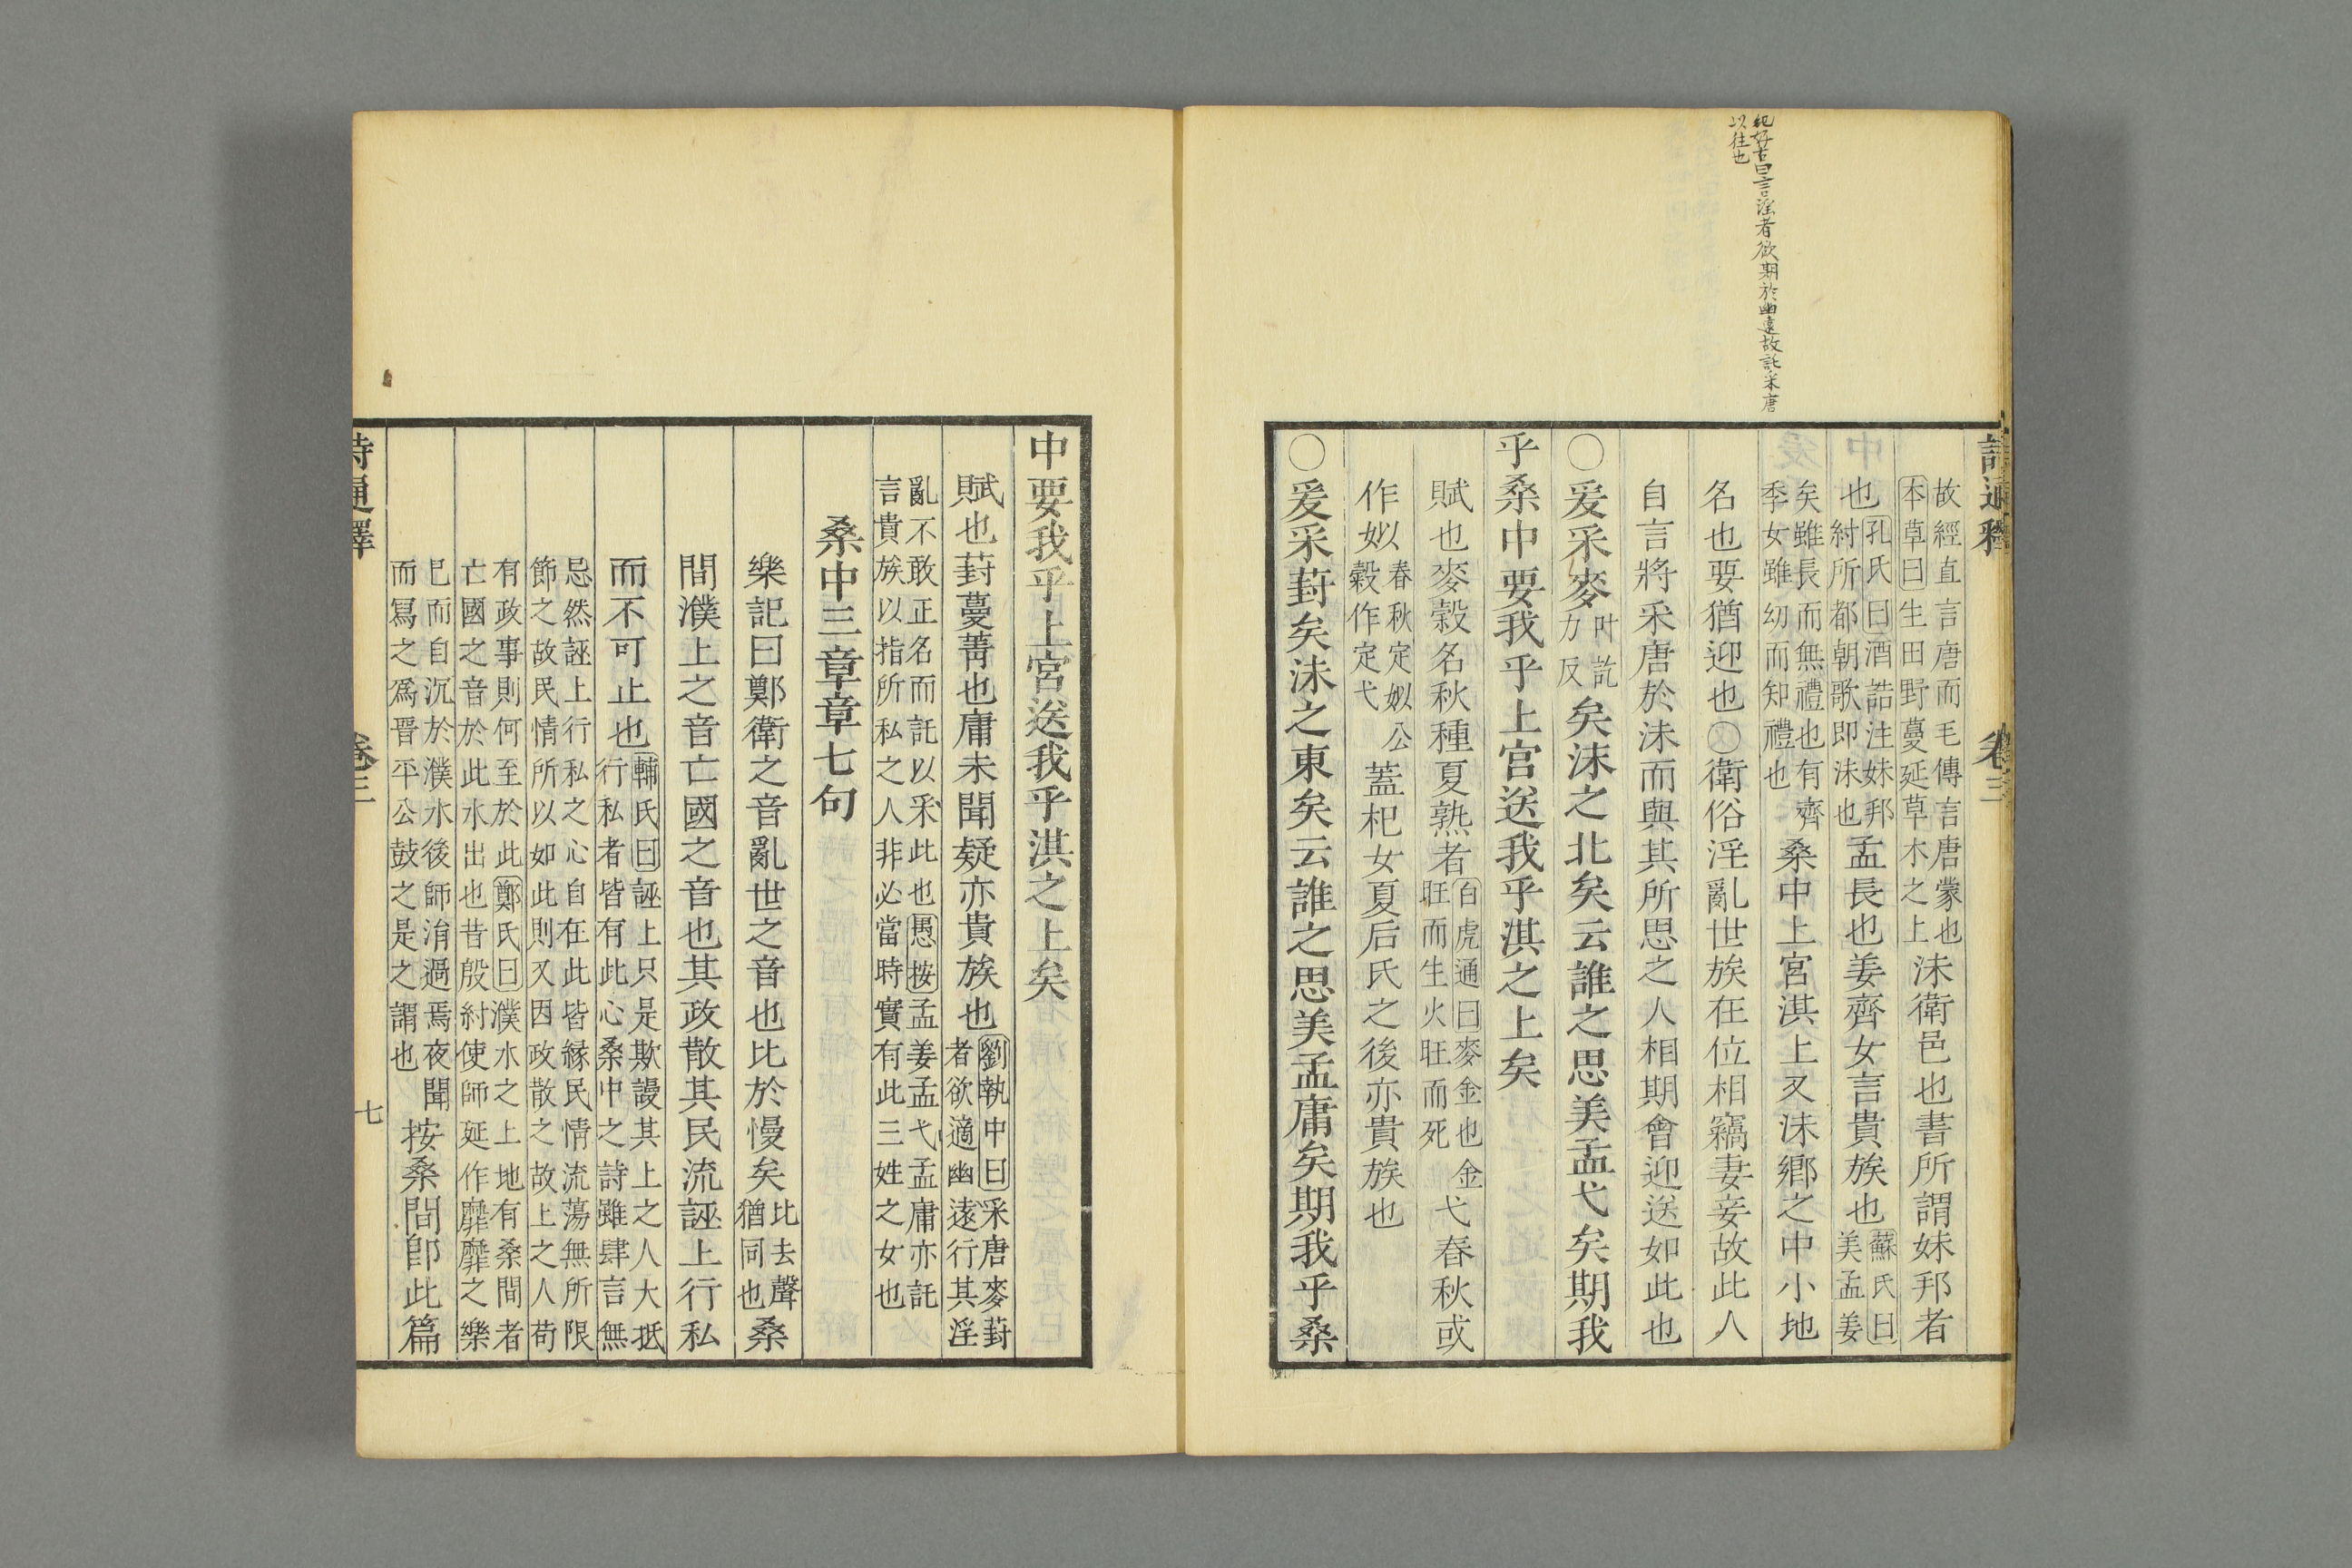 紀好古曰言淫者欲期於幽遠故託采唐
以往也
詩通釋 卷三
故經直言唐而毛傳言唐蒙也
本草曰生田野蔓延草木之上
沬衛邑也書所謂妹邦者
也
孔氏曰酒誥注妹邦
紂所都朝歌即沬也
孟長也姜齊女言貴族也
蘇氏曰
美孟姜
矣雖長而無禮也有齊
季女雖幼而知禮也
桑中上宮淇上又沬鄉之中小地
名也要猶迎也○衛俗淫亂世族在位相竊妻妾故此人
自言將采唐於沬而與其所思之人相期會迎送如此也
○爰采麥
叶訖
力反
矣沬之北矣云誰之思美孟弋矣期我
乎桑中要我乎上宮送我乎淇之上矣
賦也麥穀名秋種夏熟者
白虎通曰麥金也金
旺而生火旺而死
弋春秋或
作姒
春秋定姒公
穀作定弋
蓋杞女夏后氏之後亦貴族也
○爰采葑矣沬之東矣云誰之思美孟庸矣期我乎桑
中要我乎上宮送我乎淇之上矣
賦也葑蔓菁也庸未聞疑亦貴族也
劉執中曰采唐麥葑
者欲適幽遠行其淫
亂不敢正名而託以采此也愚按孟姜孟弋孟庸亦託
言貴族以指所私之人非必當時實有此三姓之女也
桑中三章章七句
樂記曰鄭衛之音亂世之音也比於慢矣
比去聲
猶同也
桑
間濮上之音亡國之音也其政散其民流誣上行私
而不可止也
輔氏曰誣上只是欺謾其上之人大抵
行私者皆有此心桑中之詩雖肆言無
忌然誣上行私之心自在此皆縁民情流蕩無所限
節之故民情所以如此則又因政散之故上之人苟
有政事則何至於此鄭氏曰濮水之上地有桑間者
亡國之音於此水出也昔殷紂使師延作靡靡之樂
已而自沉於濮水後師涓過焉夜聞
而寫之爲晋平公鼓之是之謂也
按桑間卽此篇
詩通釋 卷三 七